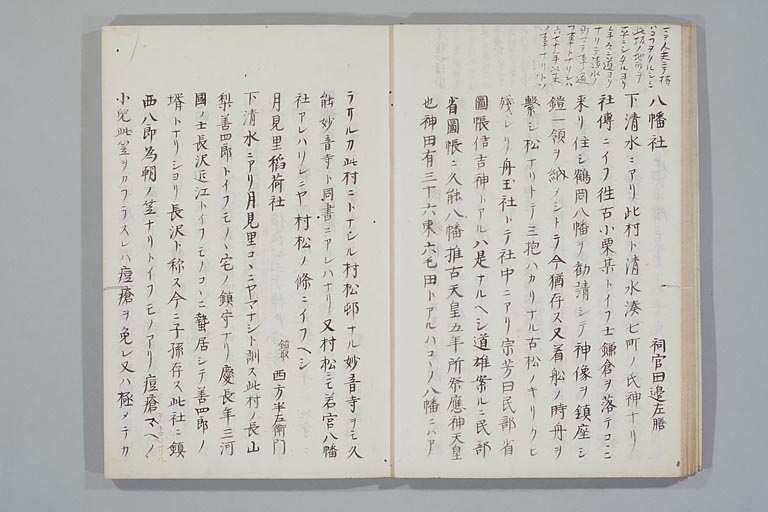 八幡社　祠官田邊左膳
下清水ニアリ此村ト清水湊七町ノ氏神ナリ
社傳ニイフ往古小栗某トイフ士鎌倉ヲ落テコヽニ
来リ住シ鶴岡八幡ヲ勧請シテ神像ヲ鎮座シ
鎧一領ヲ納ノシトテ今猶存ス又着船ノ時舟ヲ
繋シ松ナリトテ三抱ハカリナル古松ノキリクヒ
残レリ舟玉社トテ社中ニアリ宗芳曰民部省
圖帳倍吉神トアルハ是ナルヘシ道雄案ルニ民部
省圖帳ニ久能八幡推古天皇五年所祭應神天皇
也神田有三十六束六毛田トアルハコヽノ八幡ニハア
ラサルカ此村ニトナレル村松邨ナル妙音寺ヲモ久
能妙音寺ト同書ニアレハナリ又村松ニモ若宮八幡
社アレハソレニヤ村松ノ條ニイフヘシ
月見里稲荷社　鎰取　西方半左衛門
下清水ニアリ月見里コヽニヤマナシト訓ス此村ノ長山
梨善四郎トイフモノヽ宅ノ鎮守ナリ慶長年三河
國ノ士長沢近江トイフモノコヽニ蟄居シテ善四郎ノ
壻トナリシヨリ長沢ト称ス今ニ子孫存ス此社ニ鎮
西八郎為朝ノ笠ナリトイフモノアリ痘瘡マヘノ
小兒此笠ヲカフラスレハ痘瘡ヲ免レ又ハ極メテカ